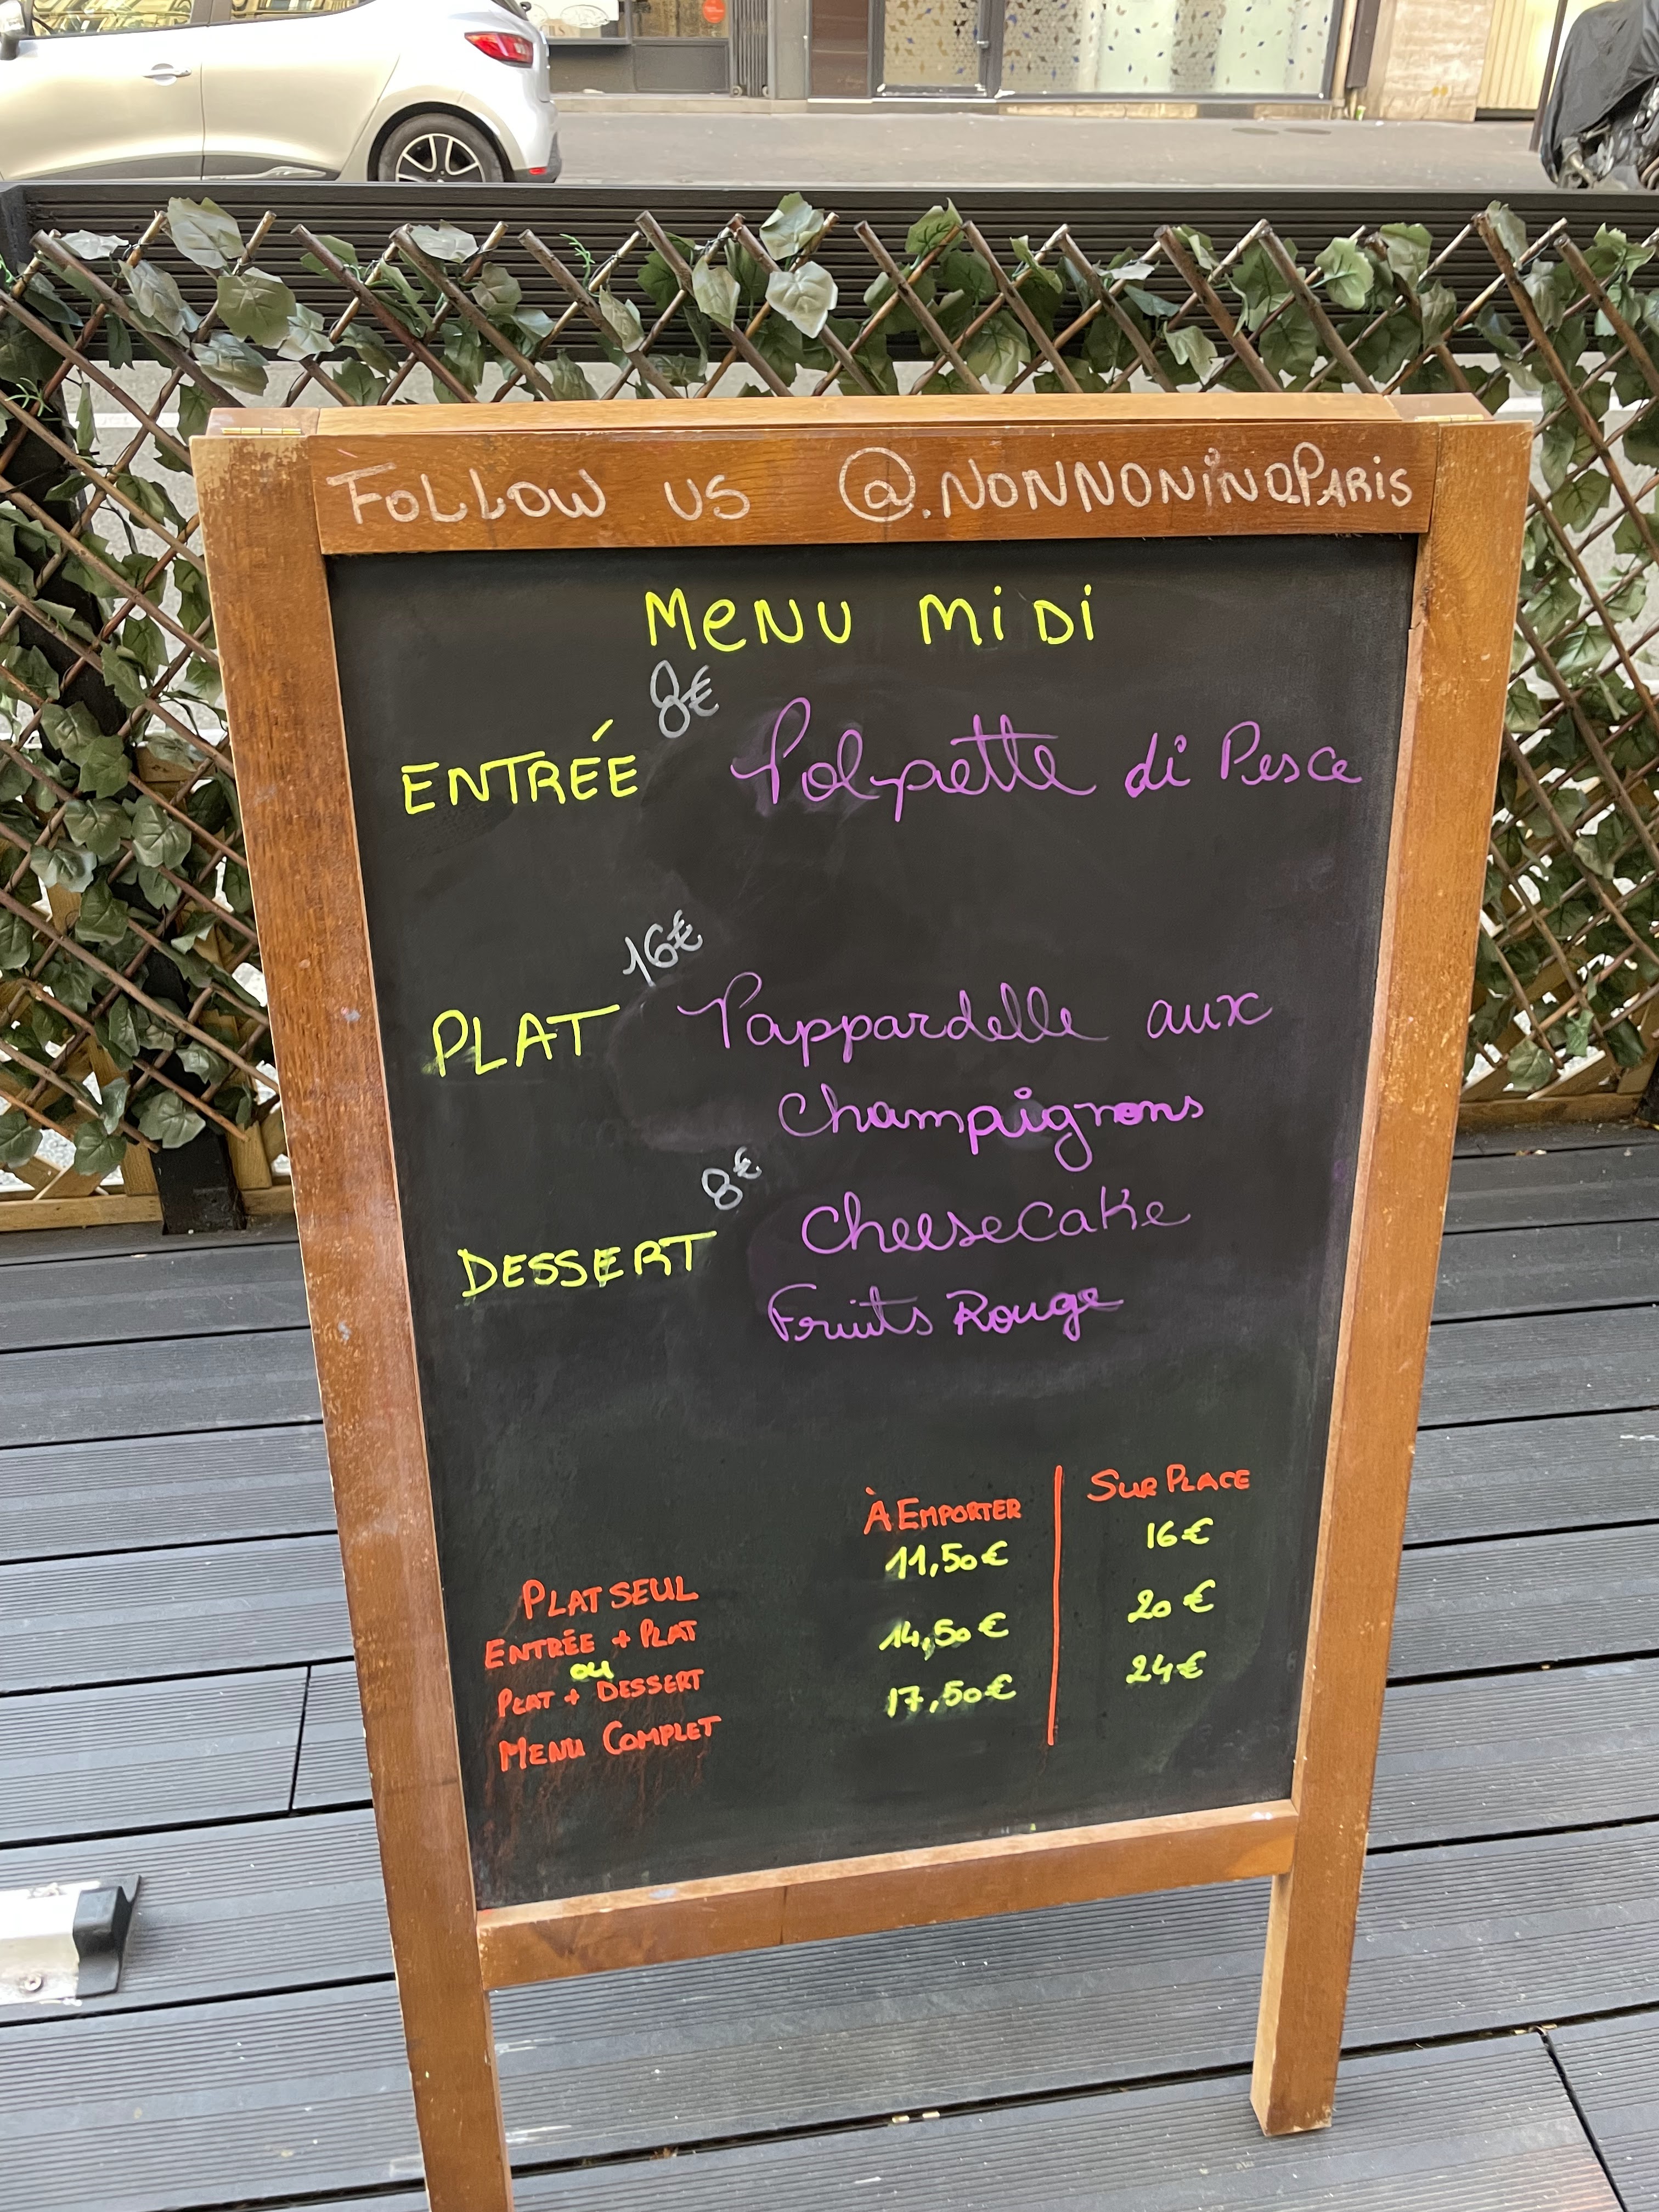 FOLLOW US @.NONNONINO.PARIS
MENU MIDI
8€
ENTRÉE Polpette di Pesce
16€
PLAT Pappardelle aux
Champignons
8€
DESSERT Cheesecake
Fruits Rouge
À EMPORTER SUR PLACE
11,50€ 16€
PLAT SEUL
14,50€ 20€
ENTRÉE + PLAT
ou
PLAT + DESSERT
17,50€ 24€
MENU COMPLET